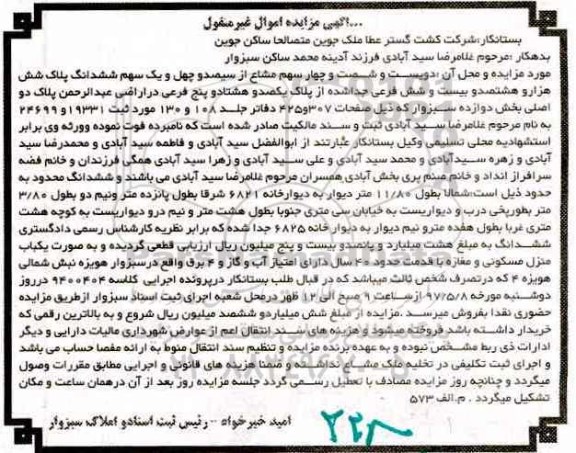 ...آگهی مزایده اموال غیرمنقول
بستانکار:شرکت کشت گستر عطا ملک جوین متصالحا ساکن جوین
بدهکار :مرحوم غلامرضا سید آبادی فرزند آدینه محمد ساکن سبزوار
مورد مزایده و محل آن :دویست و شصت و چهار سهم مشاع از سیصدو چهل و یک سهم ششدانگ پلاک شش
هزارو هشتصدو بیست و شش فرعی جداشده از پلاک یکصدو هشتادو پنج فرعی دراراضی عبدالرحمن پلاک دو
اصلی بخش دوازده سبزوار که ذیل صفحات ۳۰۷و۴۲۵ دفاتر جلد ۱۰۸ و ۱۳۰ مورد ثبت ۱۹۳۳۱و ۲۴۶۹۹
به نام مرحوم غلامرضا سید آبادی ثبت و سند مالکیت صادر شده است که نامبرده فوت نموده وورثه وی برابر
استشهادیه محلی تسلیمی وکیل بستانکار عبارتند از ابوالفضل سید آبادی و فاطمه سید آبادی و محمدرضا سید
آبادی و زهره سیدآبادی و محمد سید آبادی و علی سید آبادی و زهرا سید آبادی همگی فرزندان و خانم فضه
سرافراز انداد و خانم صنم پری بخش آبادی همسران مرحوم غلامرضا سید آبادی می باشند و ششدانگ محدود به
حدود ذیل است:شمالا بطول ۱۱/۸۰ متر دیوار به دیوارخانه ۶۸۲۱ شرقا بطول پانزده متر ونیم دو بطول ۳/۸۰
متر بطورپخی درب و دیواریست به خیابان سی متری جنوبا بطول هشت متر و نیم درو دیواریست به کوچه هشت
متری غربا بطول هفده مترو نیم دیوار به دیوار خانه ۶۸۲۵ جدا شده که برابر نظریه کارشناس رسمی دادگستری
ششدانگ به مبلغ هشت میلیارد و پانصدو بیست و پنج میلیون ریال ارزیابی قطعی گردیده و به صورت یکباب
منزل مسکونی و مغازه با قدمت حدود ۴۰ سال دارای امتیاز آب و گاز و ۴ برق واقع درسبزوار هویزه نبش شمالی
هویزه ۴ که درتصرف شخص ثالث میباشد که در قبال طلب بستانکار درپرونده اجرایی کلاسه ۹۴۰۰۴۰۴ درروز
دوشنبه مورخه ۹۷/۵/۸ ازساعت ۹ صبح الی ۱۲ ظهر درمحل شعبه اجرای ثبت اسناد سبزوار ازطریق مزایده
حضوری نقدا بفروش میرسد .مزایده از مبلغ شش میلیاردو ششصد میلیون ریال شروع و به بالاترین رقمی که
خریدار داشته باشد فروخته میشود و هزینه های سند انتقال اعم از عوارض شهرداری مالیات دارایی و دیگر
ادارات ذی ربط مشخص نبوده و به عهده برنده مزایده و تنظیم سند انتقال منوط به ارائه مفصا حساب می باشد
و اجرای ثبت تکلیفی در تخلیه ملک مشاع نداشته و ضمنا هزینه های قانونی و اجرایی مطابق مقررات وصول
میگردد و چنانچه روز مزایده مصادف با تعطیل رسمی گردد جلسه مزایده روز بعد از آن درهمان ساعت و مکان
تشکیل میگردد . م.الف ۵۷۳
امید خیرخواه - رئیس ثبت اسنادو املاک سبزوار